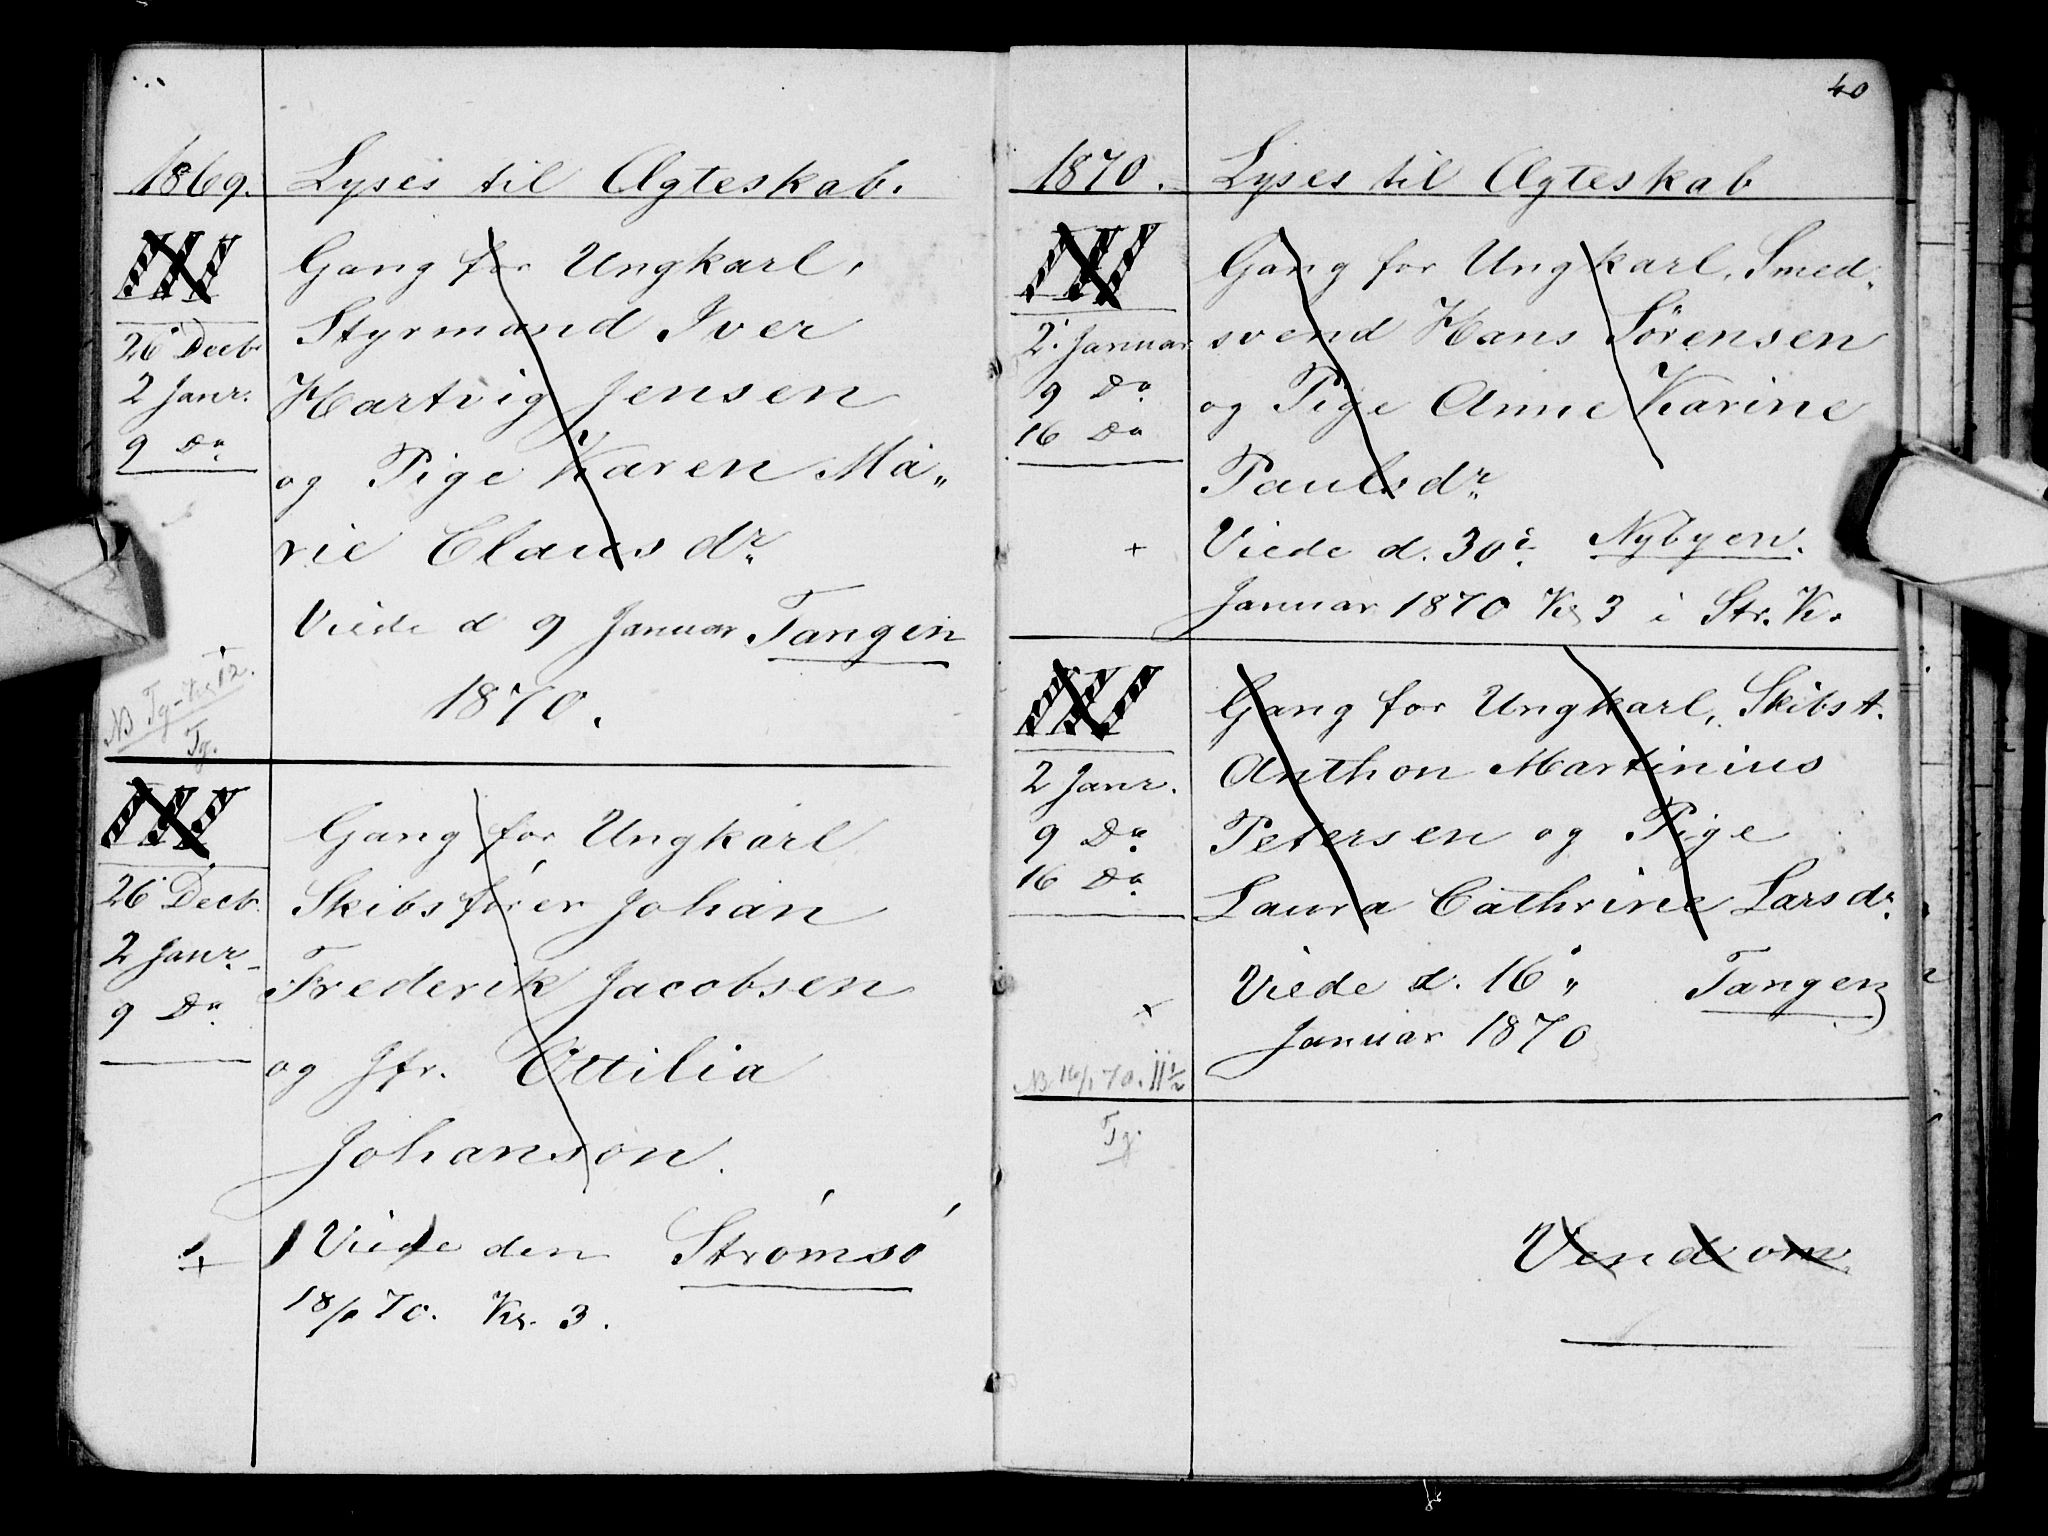 1869. Lyses til Ægteskab.
Gang for Ungkarl,
Styrmand Iver
26 Decbr
2 Janr. Hartvig Jensen
9 Do
og Pige Karen Ma„
rie Clausdr.
Viede d 9 Januar Tangen
1870.
NB Tg-
Tg.
Gang for Ungkarl
26 Decbr. Skibsfører Johan
2 Janr. Frederik Jacobsen
9 Do
og Jfr. Ottilia
Johanson.
+ Viede den Strømsø
18/1 70. Kl. 3.
40
1870. Lyses til Ægteskab
Gang for Ungkarl, Smed„
2. Januar svend Hans Sörensen
9 Do og Pige Anne Karine
16 Do
Paulsdr.
+ Viede d. 30te Nybyen.
Januar 1870 Kl 3 i Str. K.
Gang for Ungkarl, Skibst.
2 Janr. Anthon Martinius
9 Do Petersen og Pige
16 Do Laura Cathrine Larsdr.
+ Viede d. 16„ Tangen
Januar 1870
NB 16/1 70. 11 1/2
Tg.
Vend om